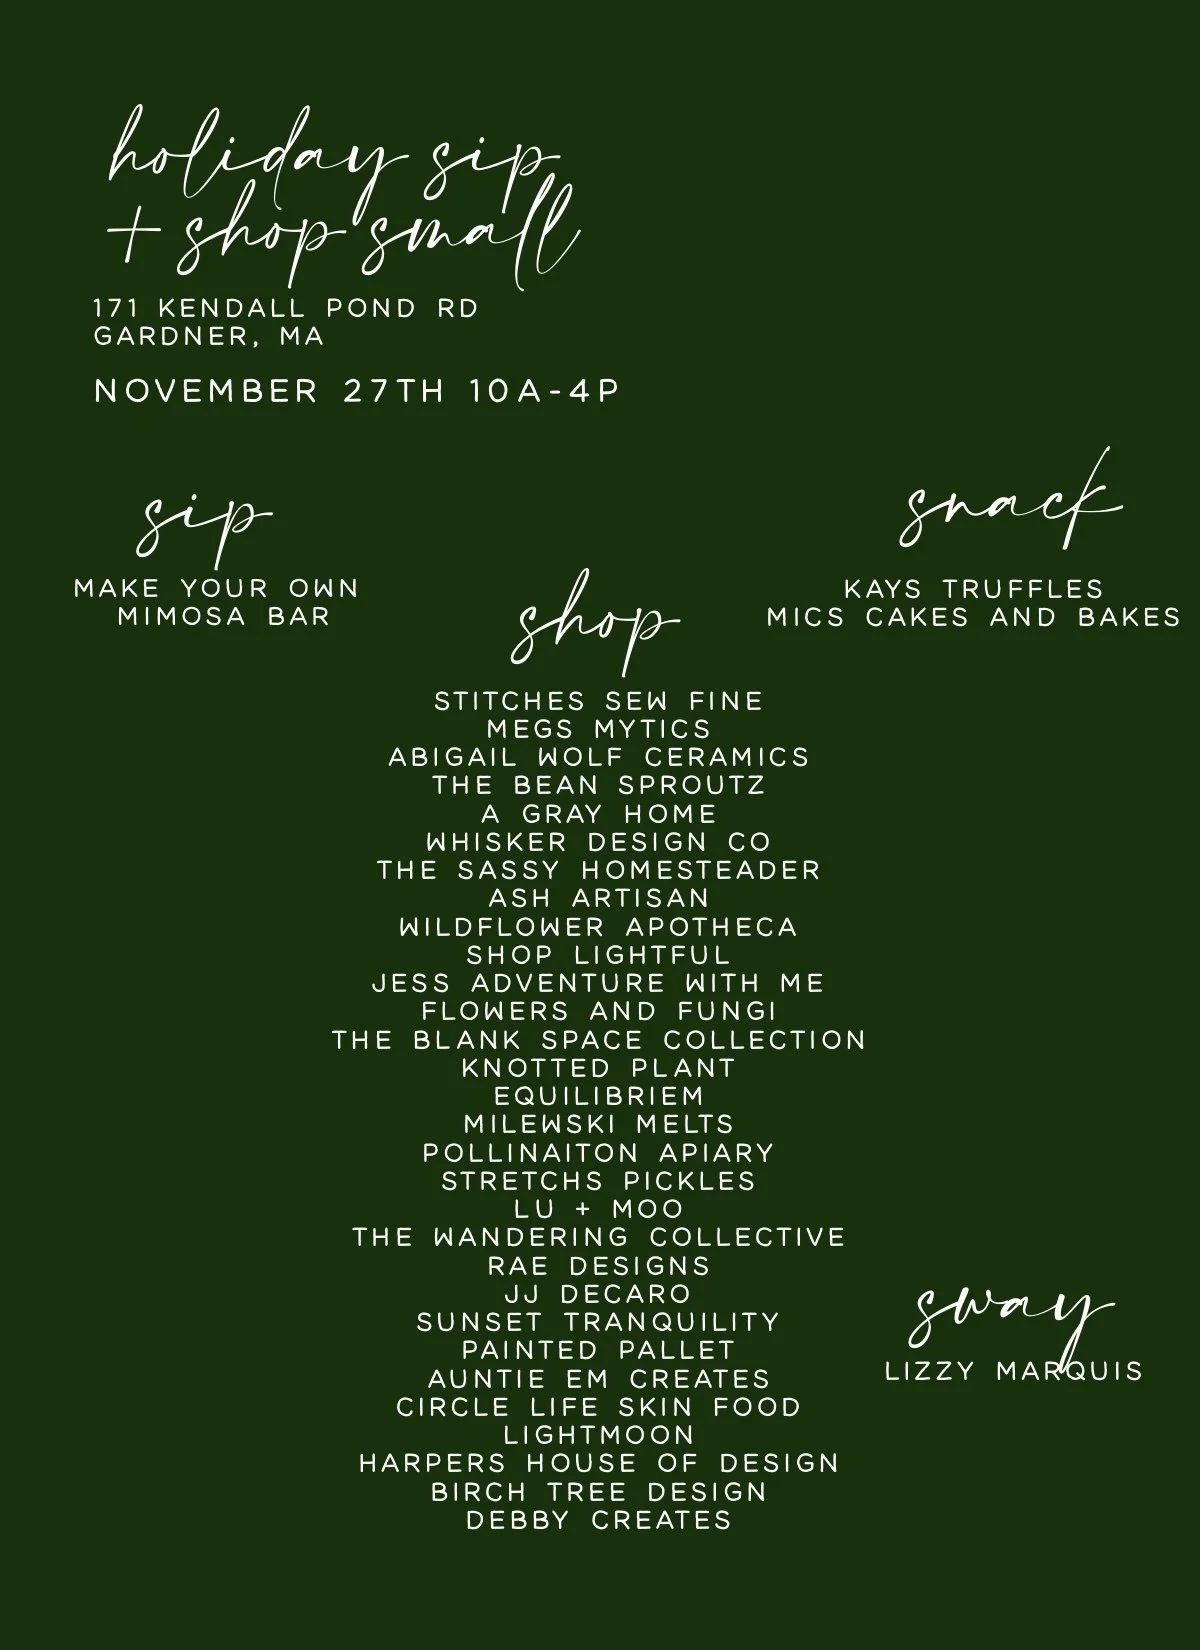 holiday sip
+ shop small
171 KENDALL POND RD
GARDNER, MA
NOVEMBER 27TH 10A-4P
sip
MAKE YOUR OWN
MIMOSA BAR
snack
KAYS TRUFFLES
MICS CAKES AND BAKES
shop
STITCHES SEW FINE
MEGS MYTICS
ABIGAIL WOLF CERAMICS
THE BEAN SPROUTZ
A GRAY HOME
WHISKER DESIGN CO
THE SASSY HOMESTEADER
ASH ARTISAN
WILDFLOWER APOTHECA
SHOP LIGHTFUL
JESS ADVENTURE WITH ME
FLOWERS AND FUNGI
THE BLANK SPACE COLLECTION
KNOTTED PLANT
EQUILIBRIEM
MILEWSKI MELTS
POLLINAITON APIARY
STRETCHS PICKLES
LU + MOO
THE WANDERING COLLECTIVE
RAE DESIGNS
JJ DECARO
SUNSET TRANQUILITY
PAINTED PALLET
AUNTIE EM CREATES
CIRCLE LIFE SKIN FOOD
LIGHTMOON
HARPERS HOUSE OF DESIGN
BIRCH TREE DESIGN
DEBBY CREATES
sway
LIZZY MARQUIS